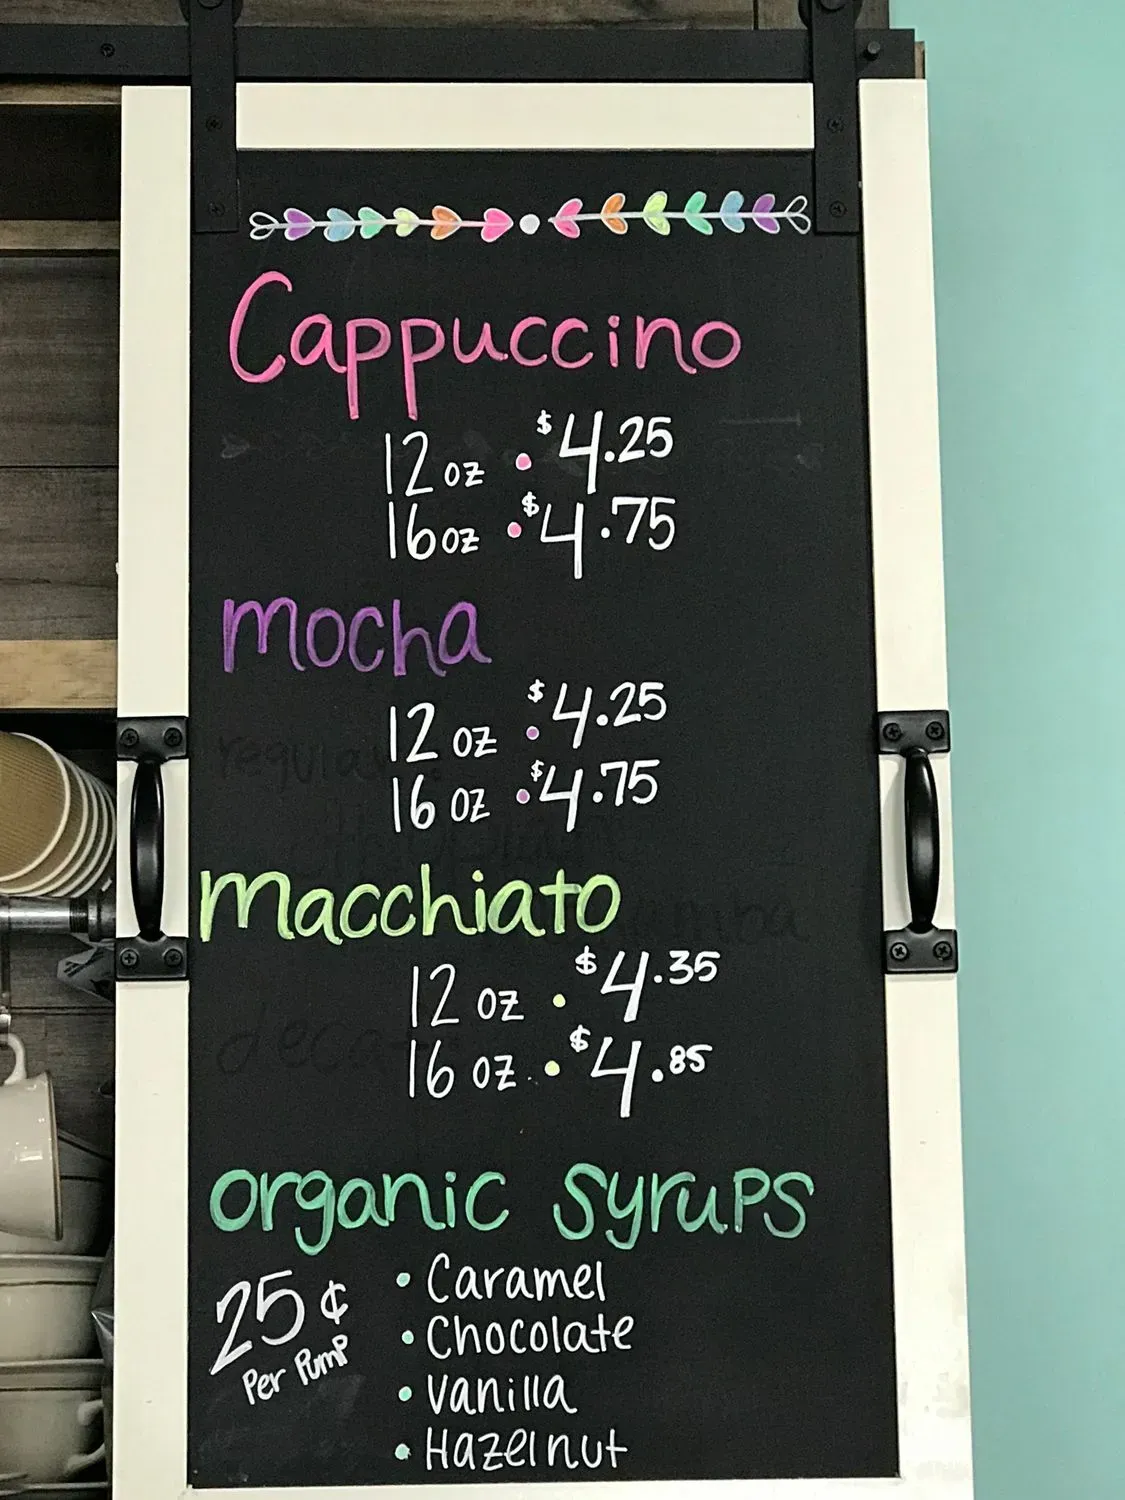 Cappuccino
12 oz • $4.25
16 oz • $4.75
mocha
12 oz • $4.25
16 oz • $4.75
macchiato
12 oz • $4.35
16 oz • $4.85
organic syrups
25¢ Per Pump
• Caramel
• Chocolate
• Vanilla
• Hazelnut
regular
decaf